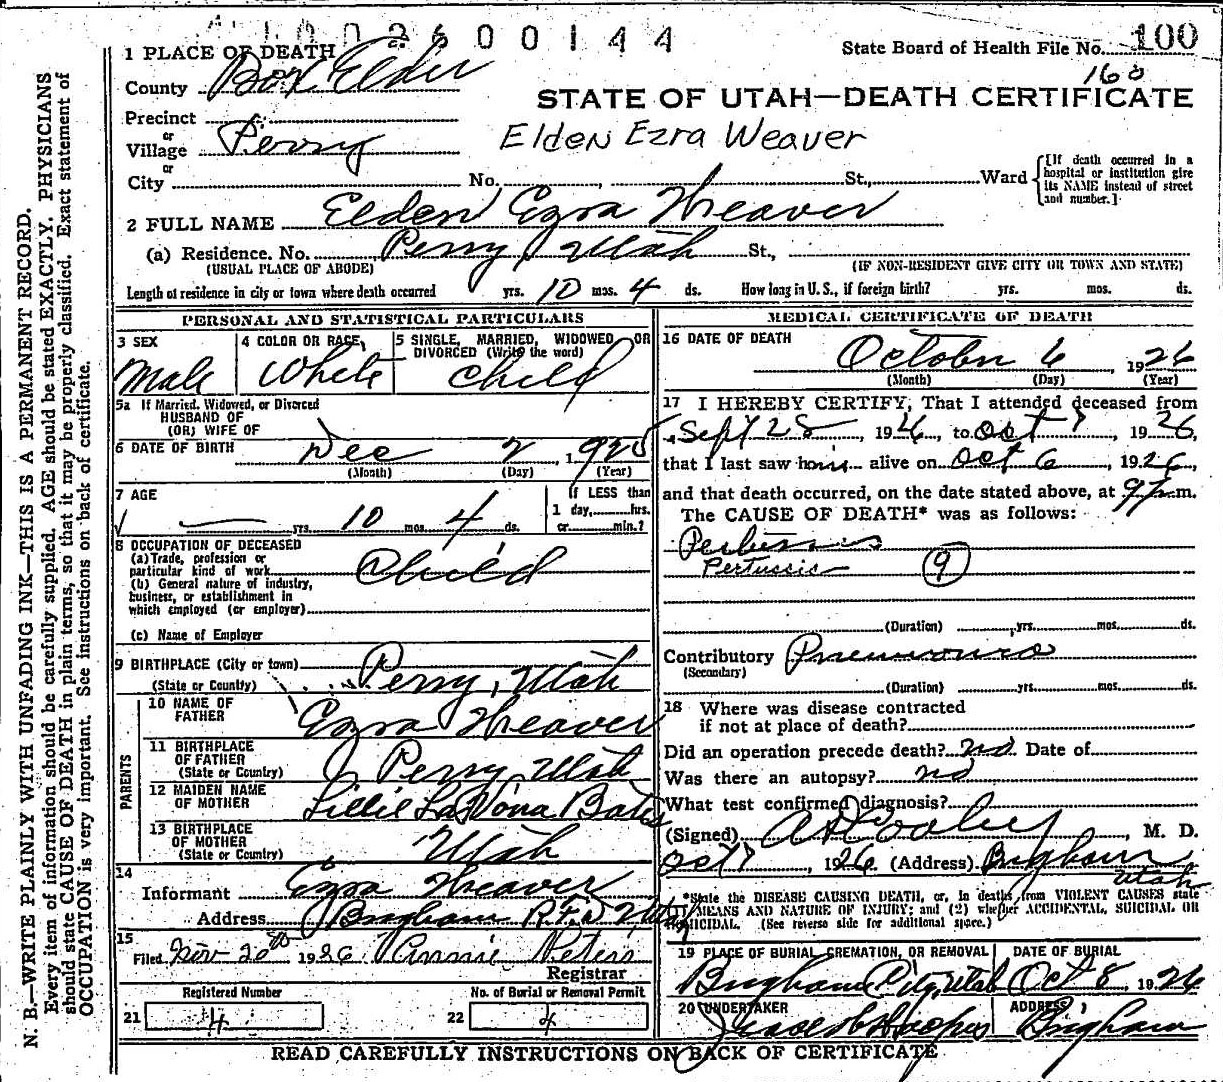 1002600144
State Board of Health File No. 100
160
1 PLACE OF DEATH
County Box Elder
STATE OF UTAH—DEATH CERTIFICATE
Precinct
or
Village Perry
Elden Ezra Weaver
or
City No. St., Ward
[If death occurred in a hospital or institution give its NAME instead of street and number.]
2 FULL NAME Elden Ezra Weaver
(a) Residence. No. Perry, Utah St.,
(USUAL PLACE OF ABODE) (IF NON-RESIDENT GIVE CITY OR TOWN AND STATE)
Length of residence in city or town where death occurred yrs. 10 mos. 4 ds. How long in U. S., if foreign birth? yrs. mos. ds.
PERSONAL AND STATISTICAL PARTICULARS
3 SEX Male
4 COLOR OR RACE, White
5 SINGLE, MARRIED, WIDOWED OR DIVORCED (Write the word) child
5a If Married, Widowed, or Divorced
HUSBAND OF
(OR) WIFE OF
6 DATE OF BIRTH Dec 2 1925
(Month) (Day) (Year)
7 AGE
yrs. 10 mos. 4 ds.
If LESS than
1 day, hrs.
or min.?
8 OCCUPATION OF DECEASED
(a) Trade, profession or
particular kind of work Child
(b) General nature of industry,
business, or establishment in
which employed (or employer)
(c) Name of Employer
9 BIRTHPLACE (City or town) Perry, Utah
(State or Country)
PARENTS
10 NAME OF FATHER Ezra Weaver
11 BIRTHPLACE OF FATHER (State or Country) Perry, Utah
12 MAIDEN NAME OF MOTHER Lillie LaVona Bates
13 BIRTHPLACE OF MOTHER (State or Country) Utah
14
Informant Ezra Weaver
Address Brigham R.F.D. Utah
15
Filed Nov 20th 1926 Annie Peters
Registrar
Registered Number
21 4
No. of Burial or Removal Permit
22 4
MEDICAL CERTIFICATE OF DEATH
16 DATE OF DEATH
October 6 1926
(Month) (Day) (Year)
17 I HEREBY CERTIFY, That I attended deceased from
Sept 28, 1926, to Oct 7, 1926,
that I last saw him alive on Oct 6, 1926,
and that death occurred, on the date stated above, at 9 P.m.
The CAUSE OF DEATH* was as follows:
Pertussis
Pertussis 9
(Duration) yrs. mos. ds.
Contributory Pneumonia
(Secondary)
(Duration) yrs. mos. ds.
18 Where was disease contracted
if not at place of death?
Did an operation precede death? no Date of
Was there an autopsy? no
What test confirmed diagnosis?
(Signed) , M. D.
Oct 7, 1926 (Address) Brigham
Utah
*State the DISEASE CAUSING DEATH, or, in deaths from VIOLENT CAUSES state
(1) MEANS AND NATURE OF INJURY; and (2) whether ACCIDENTAL, SUICIDAL OR
HOMICIDAL. (See reverse side for additional space.)
19 PLACE OF BURIAL, CREMATION, OR REMOVAL
Brigham City, Utah
DATE OF BURIAL
Oct 8, 1926
20 UNDERTAKER
ADDRESS
Brigham
READ CAREFULLY INSTRUCTIONS ON BACK OF CERTIFICATE
N. B.—WRITE PLAINLY WITH UNFADING INK—THIS IS A PERMANENT RECORD.
Every item of information should be carefully supplied. AGE should be stated EXACTLY. PHYSICIANS
should state CAUSE OF DEATH in plain terms, so that it may be properly classified. Exact statement of
OCCUPATION is very important. See instructions on back of certificate.